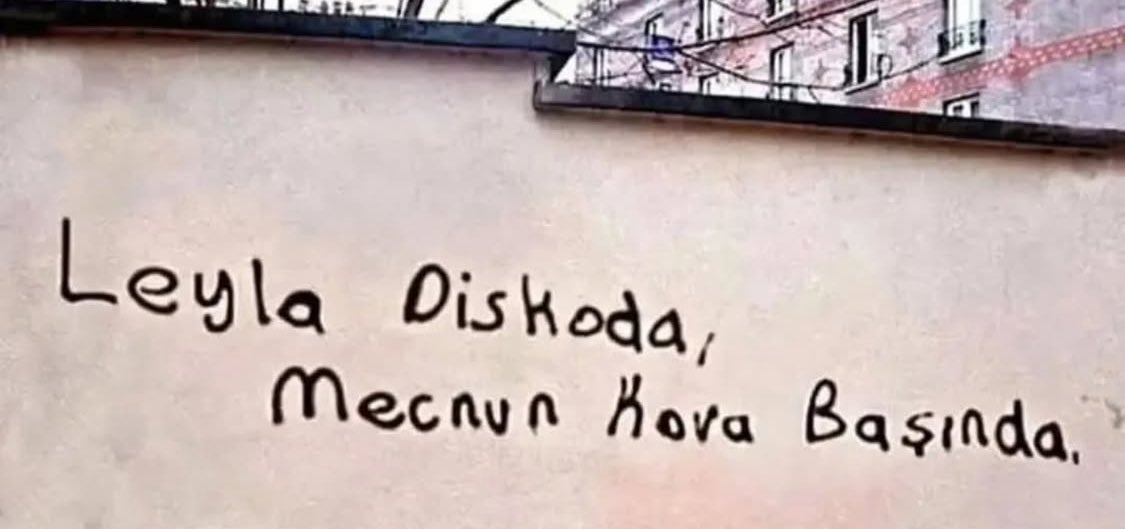 Leyla Diskoda,
Mecnun Kova Başında.